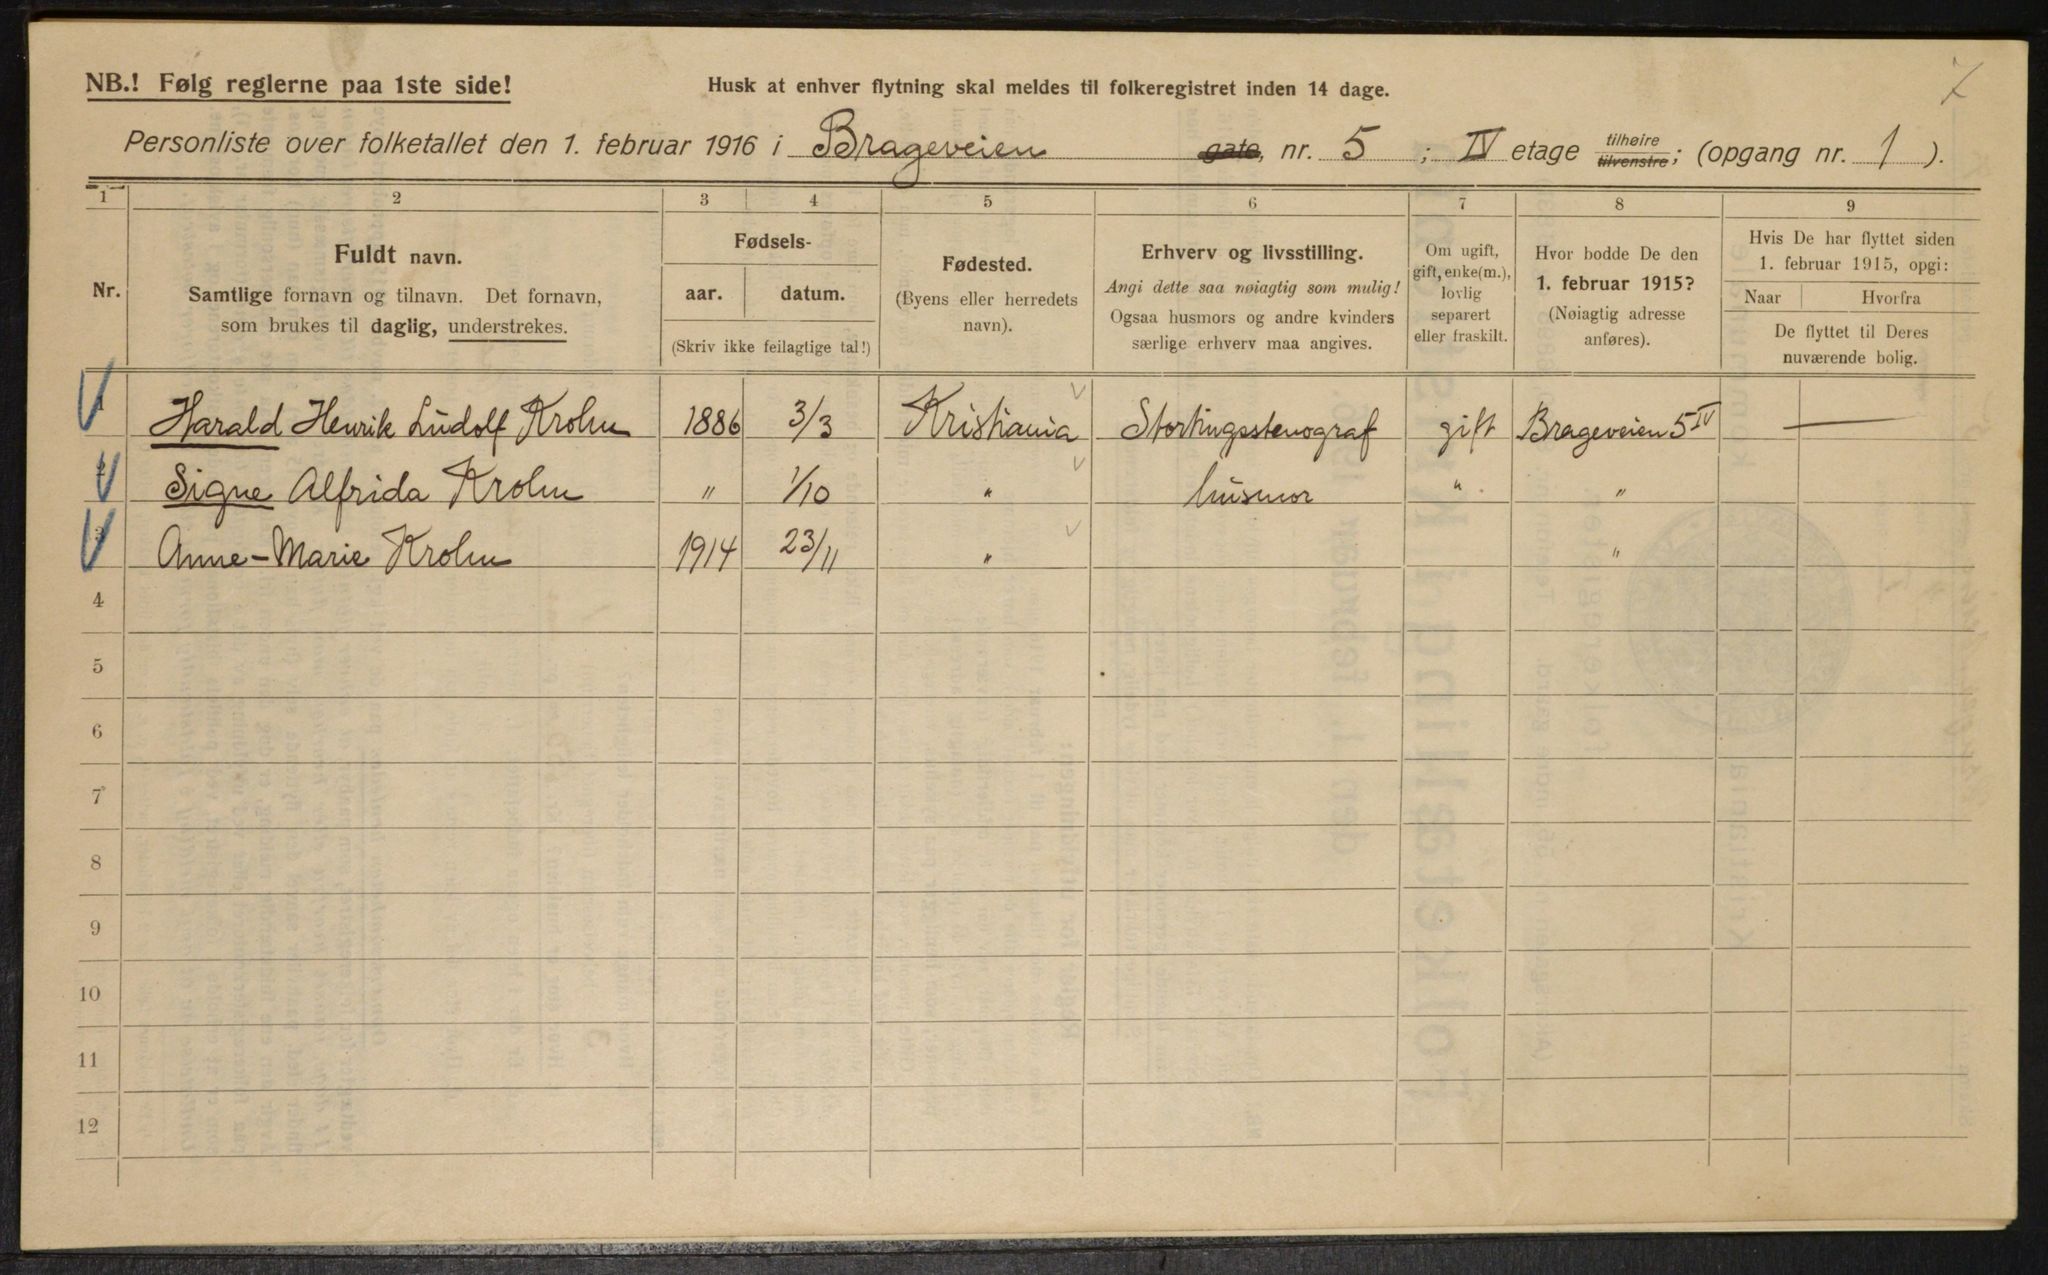 7
NB.! Følg reglerne paa 1ste side!
Husk at enhver flytning skal meldes til folkeregistret inden 14 dage.
Personliste over folketallet den 1. februar 1916 i Brageveien gate, nr. 5 ; IV etage tilhøire tilvenstre; (opgang nr. 1 ).
1 2 3 4 5 6 7 8 9
Nr.
Fuldt navn.
Samtlige fornavn og tilnavn. Det fornavn,
som brukes til daglig, understrekes.
Fødsels-
aar. datum.
(Skriv ikke feilagtige tal!)
Fødested.
(Byens eller herredets
navn).
Erhverv og livsstilling.
Angi dette saa nøiagtig som mulig!
Ogsaa husmors og andre kvinders
særlige erhverv maa angives.
Om ugift,
gift, enke(m.),
lovlig
separert
eller fraskilt.
Hvor bodde De den
1. februar 1915?
(Nøiagtig adresse
anføres).
Hvis De har flyttet siden
1. februar 1915, opgi:
Naar Hvorfra
De flyttet til Deres
nuværende bolig.
1 Harald Henrik Ludolf Krohn 1886 3/3 Kristiania Stortingsstenograf gift Brageveien 5 IV —
2 Signe Alfrida Krohn " 1/10 " husmor " "
3 Anne-Marie Krohn 1914 23/11 " "
4
5
6
7
8
9
10
11
12